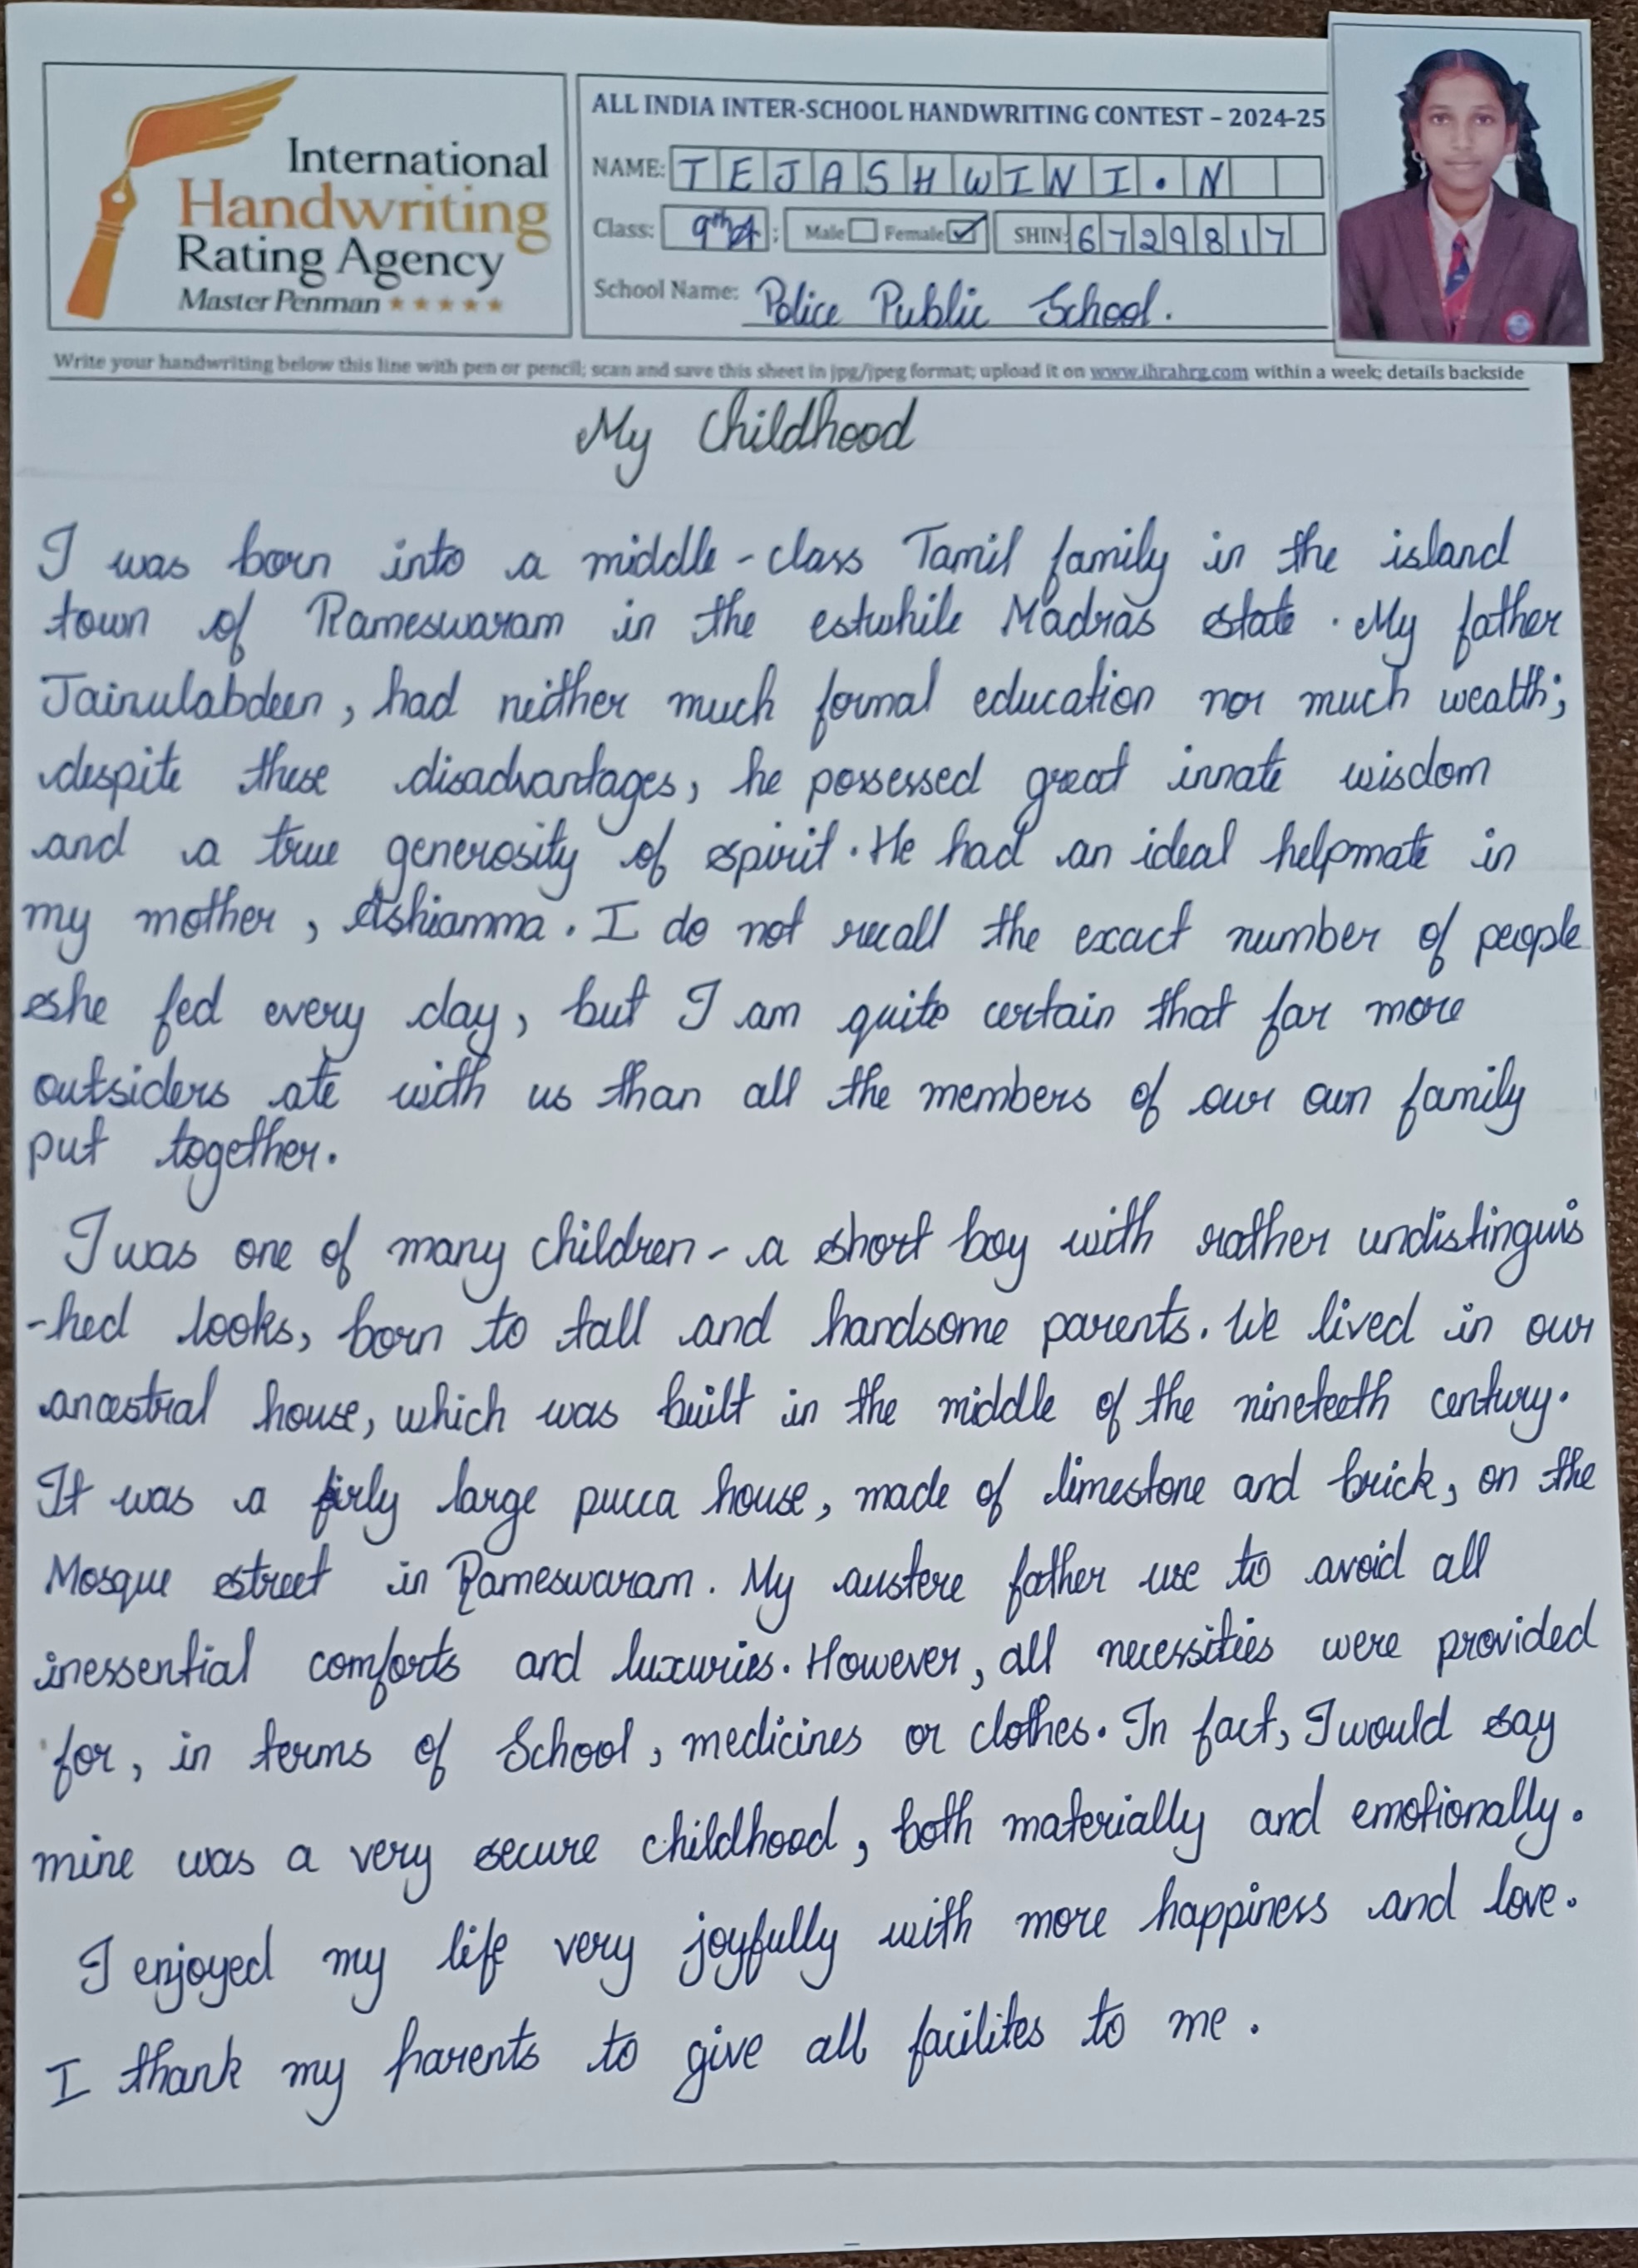 International
Handwriting
Rating Agency
Master Penman ★★★★★
ALL INDIA INTER-SCHOOL HANDWRITING CONTEST – 2024-25
NAME: TEJASHWINI.N
Class: 9th A; Male Female ✓ SHIN: 6729817
School Name: Police Public School.
Write your handwriting below this line with pen or pencil; scan and save this sheet in jpg/jpeg format; upload it on www.ihrahrg.com within a week; details backside
My Childhood
I was born into a middle-class Tamil family in the island
town of Rameswaram in the estwhile Madras state. My father
Jainulabdeen, had neither much formal education nor much wealth;
despite these disadvantages, he possessed great innate wisdom
and a true generosity of spirit. He had an ideal helpmate in
my mother, Ashiamma. I do not recall the exact number of people
she fed every day, but I am quite certain that far more
outsiders ate with us than all the members of our own family
put together.
I was one of many children - a short boy with rather undistinguis
-hed looks, born to tall and handsome parents. We lived in our
ancestral house, which was built in the middle of the nineteeth century.
It was a firly large pucca house, made of limestone and brick, on the
Mosque street in Rameswaram. My austere father use to avoid all
inessential comforts and luxuries. However, all necessities were provided
for, in terms of School, medicines or clothes. In fact, I would say
mine was a very secure childhood, both materially and emotionally.
I enjoyed my life very joyfully with more happiness and love.
I thank my parents to give all facilites to me.